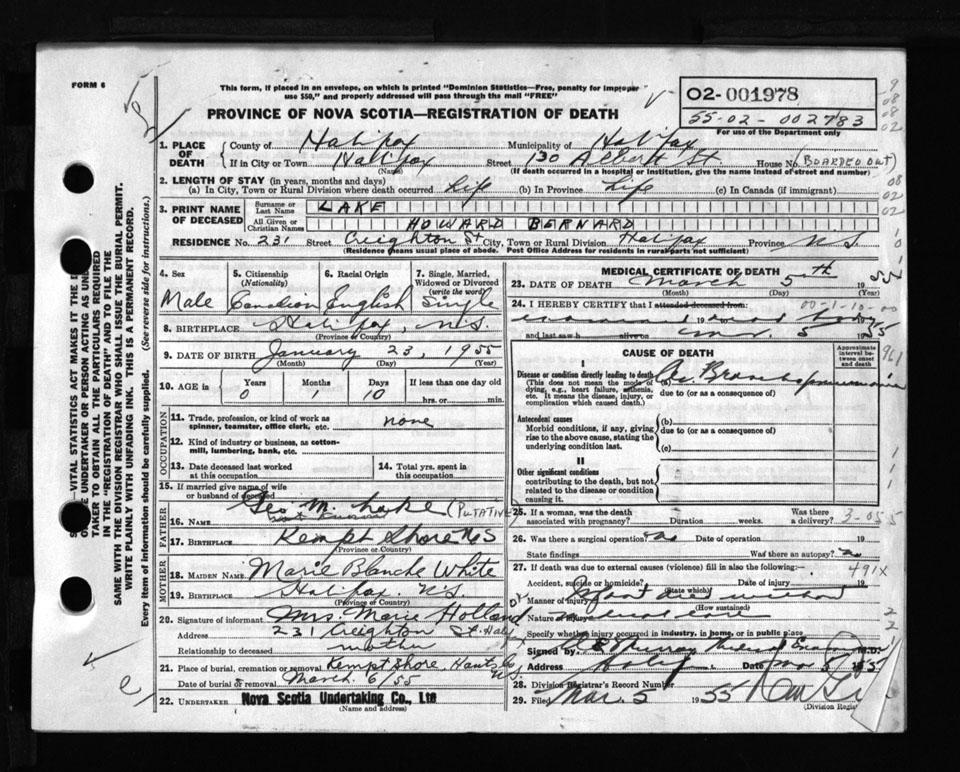 FORM 6
This form, if placed in an envelope, on which is printed "Dominion Statistics—Free, penalty for improper
use $50," and properly addressed will pass through the mail "FREE"
02-001978
55-02-002783
For use of the Department only
PROVINCE OF NOVA SCOTIA—REGISTRATION OF DEATH
1. PLACE OF DEATH
County of Halifax Municipality of Halifax
If in City or Town Halifax Street 130 Albert St House No. (BOARDED OUT)
(Name) (If death occurred in a hospital or institution, give the name instead of street and number)
2. LENGTH OF STAY (in years, months and days)
(a) In City, Town or Rural Division where death occurred Life (b) In Province Life (c) In Canada (if immigrant)
3. PRINT NAME OF DECEASED
Surname or Last Name LAKE
All Given or Christian Names HOWARD BERNARD
RESIDENCE No. 231 Street Creighton St City, Town or Rural Division Halifax Province N.S.
(Residence means usual place of abode. Post Office Address for residents in rural parts not sufficient)
4. Sex 5. Citizenship (Nationality) 6. Racial Origin 7. Single, Married, Widowed or Divorced (write the word)
Male Canadian English Single
8. BIRTHPLACE Halifax, N.S.
(Province or Country)
9. DATE OF BIRTH January 23, 1955
(Month) (Day) (Year)
10. AGE in Years Months Days If less than one day old
0 1 10 hrs. or min.
OCCUPATION
11. Trade, profession, or kind of work as
spinner, teamster, office clerk, etc. none
12. Kind of industry or business, as cotton-
mill, lumbering, bank, etc.
13. Date deceased last worked at this occupation
14. Total yrs. spent in this occupation
15. If married give name of wife
or husband of deceased
FATHER
16. Name Geo M. Lake (PUTATIVE)
17. Birthplace Kempt Shore N.S
(Province or Country)
MOTHER
18. Maiden Name Marie Blanche White
19. Birthplace Halifax. N.S.
(Province or Country)
20. Signature of informant Mrs. Marie Holland
Address 231 Creighton St. Halifax
Relationship to deceased mother
21. Place of burial, cremation or removal Kempt Shore Hants Co N.S.
Date of burial or removal March 6/55
22. UNDERTAKER Nova Scotia Undertaking Co., Ltd
(Name and address)
MEDICAL CERTIFICATE OF DEATH
23. DATE OF DEATH March 5th 1955
(Month) (Day)
24. I HEREBY CERTIFY that I attended deceased from:
examined dead body
and last saw h alive on Mar 5 1955
CAUSE OF DEATH
Approximate interval between onset and death
I
Disease or condition directly leading to death (a) Ac. Bronchopneumonia
(This does not mean the mode of dying, e.g., heart failure, asthenia, etc. It means the disease, injury, or complication which caused death.)
due to (or as a consequence of)
Antecedent causes
Morbid conditions, if any, giving rise to the above cause, stating the underlying condition last.
(b)
due to (or as a consequence of)
(c)
II
Other significant conditions
contributing to the death, but not related to the disease or condition causing it.
25. If a woman, was the death associated with pregnancy? Duration weeks. Was there a delivery? 3-055
26. Was there a surgical operation? no Date of operation 19
State findings Was there an autopsy? no
27. If death was due to external causes (violence) fill in also the following:- 491X
Accident, suicide or homicide? Date of injury 19
(State which)
Manner of injury
(How sustained)
Nature of injury
Specify whether injury occurred in industry, in home, or in public place
Signed by M.D.
Address Date Mar 5 1955
28. Division Registrar's Record Number
29. Filed Mar. 5 1955
(Division Registrar)
SAME WITH THE DIVISION REGISTRAR WHO SHALL ISSUE THE BURIAL PERMIT.
WRITE PLAINLY WITH UNFADING INK. THIS IS A PERMANENT RECORD.
Every item of information should be carefully supplied. (See reverse side for instructions.)
VITAL STATISTICS ACT MAKES IT THE
UNDERTAKER OR PERSON ACTING AS
TAKER TO OBTAIN ALL THE PARTICULARS REQUIRED
IN THE "REGISTRATION OF DEATH" AND TO FILE THE